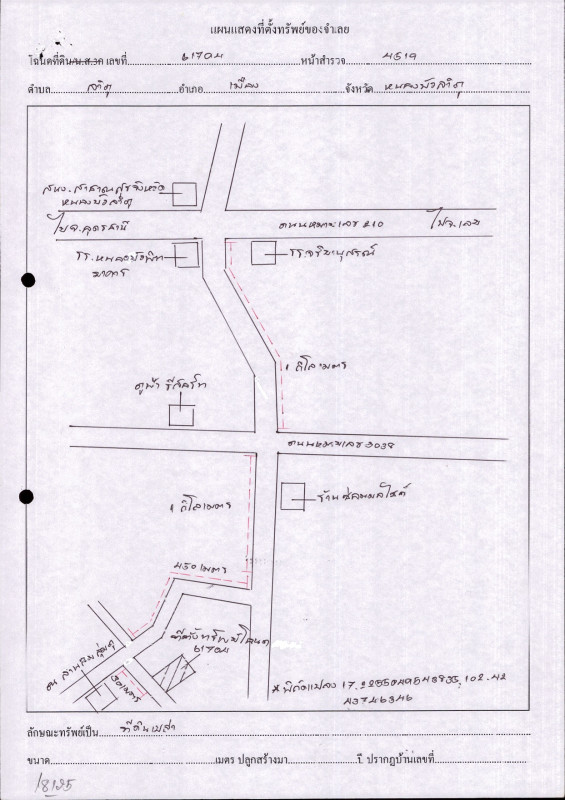 แผนแสดงที่ตั้งทรัพย์ของจำเลย
โฉนดที่ดิน/น.ส.3ก เลขที่ 61704 หน้าสำรวจ 4519
ตำบล ลำภู อำเภอ เมือง จังหวัด หนองบัวลำภู
สนง.สาธารณสุขจังหวัด
หนองบัวลำภู
ไป จ.อุดรธานี
ถนนหมายเลข 210
ไป จ.เลย
รร.หนองบัวพิทยาคาร
1 กิโลเมตร
ภูผา รีสอร์ท
ถนนหมายเลข 3038
1 กิโลเมตร
ร้านซ่อมมอไซค์
450 เมตร
ที่ตั้งทรัพย์โฉนด
61704
* พิกัดแปลง 17.
ลักษณะทรัพย์เป็น ที่ดินเปล่า
ขนาด เมตร ปลูกสร้างมา ปี ปรากฏบ้านเลขที่